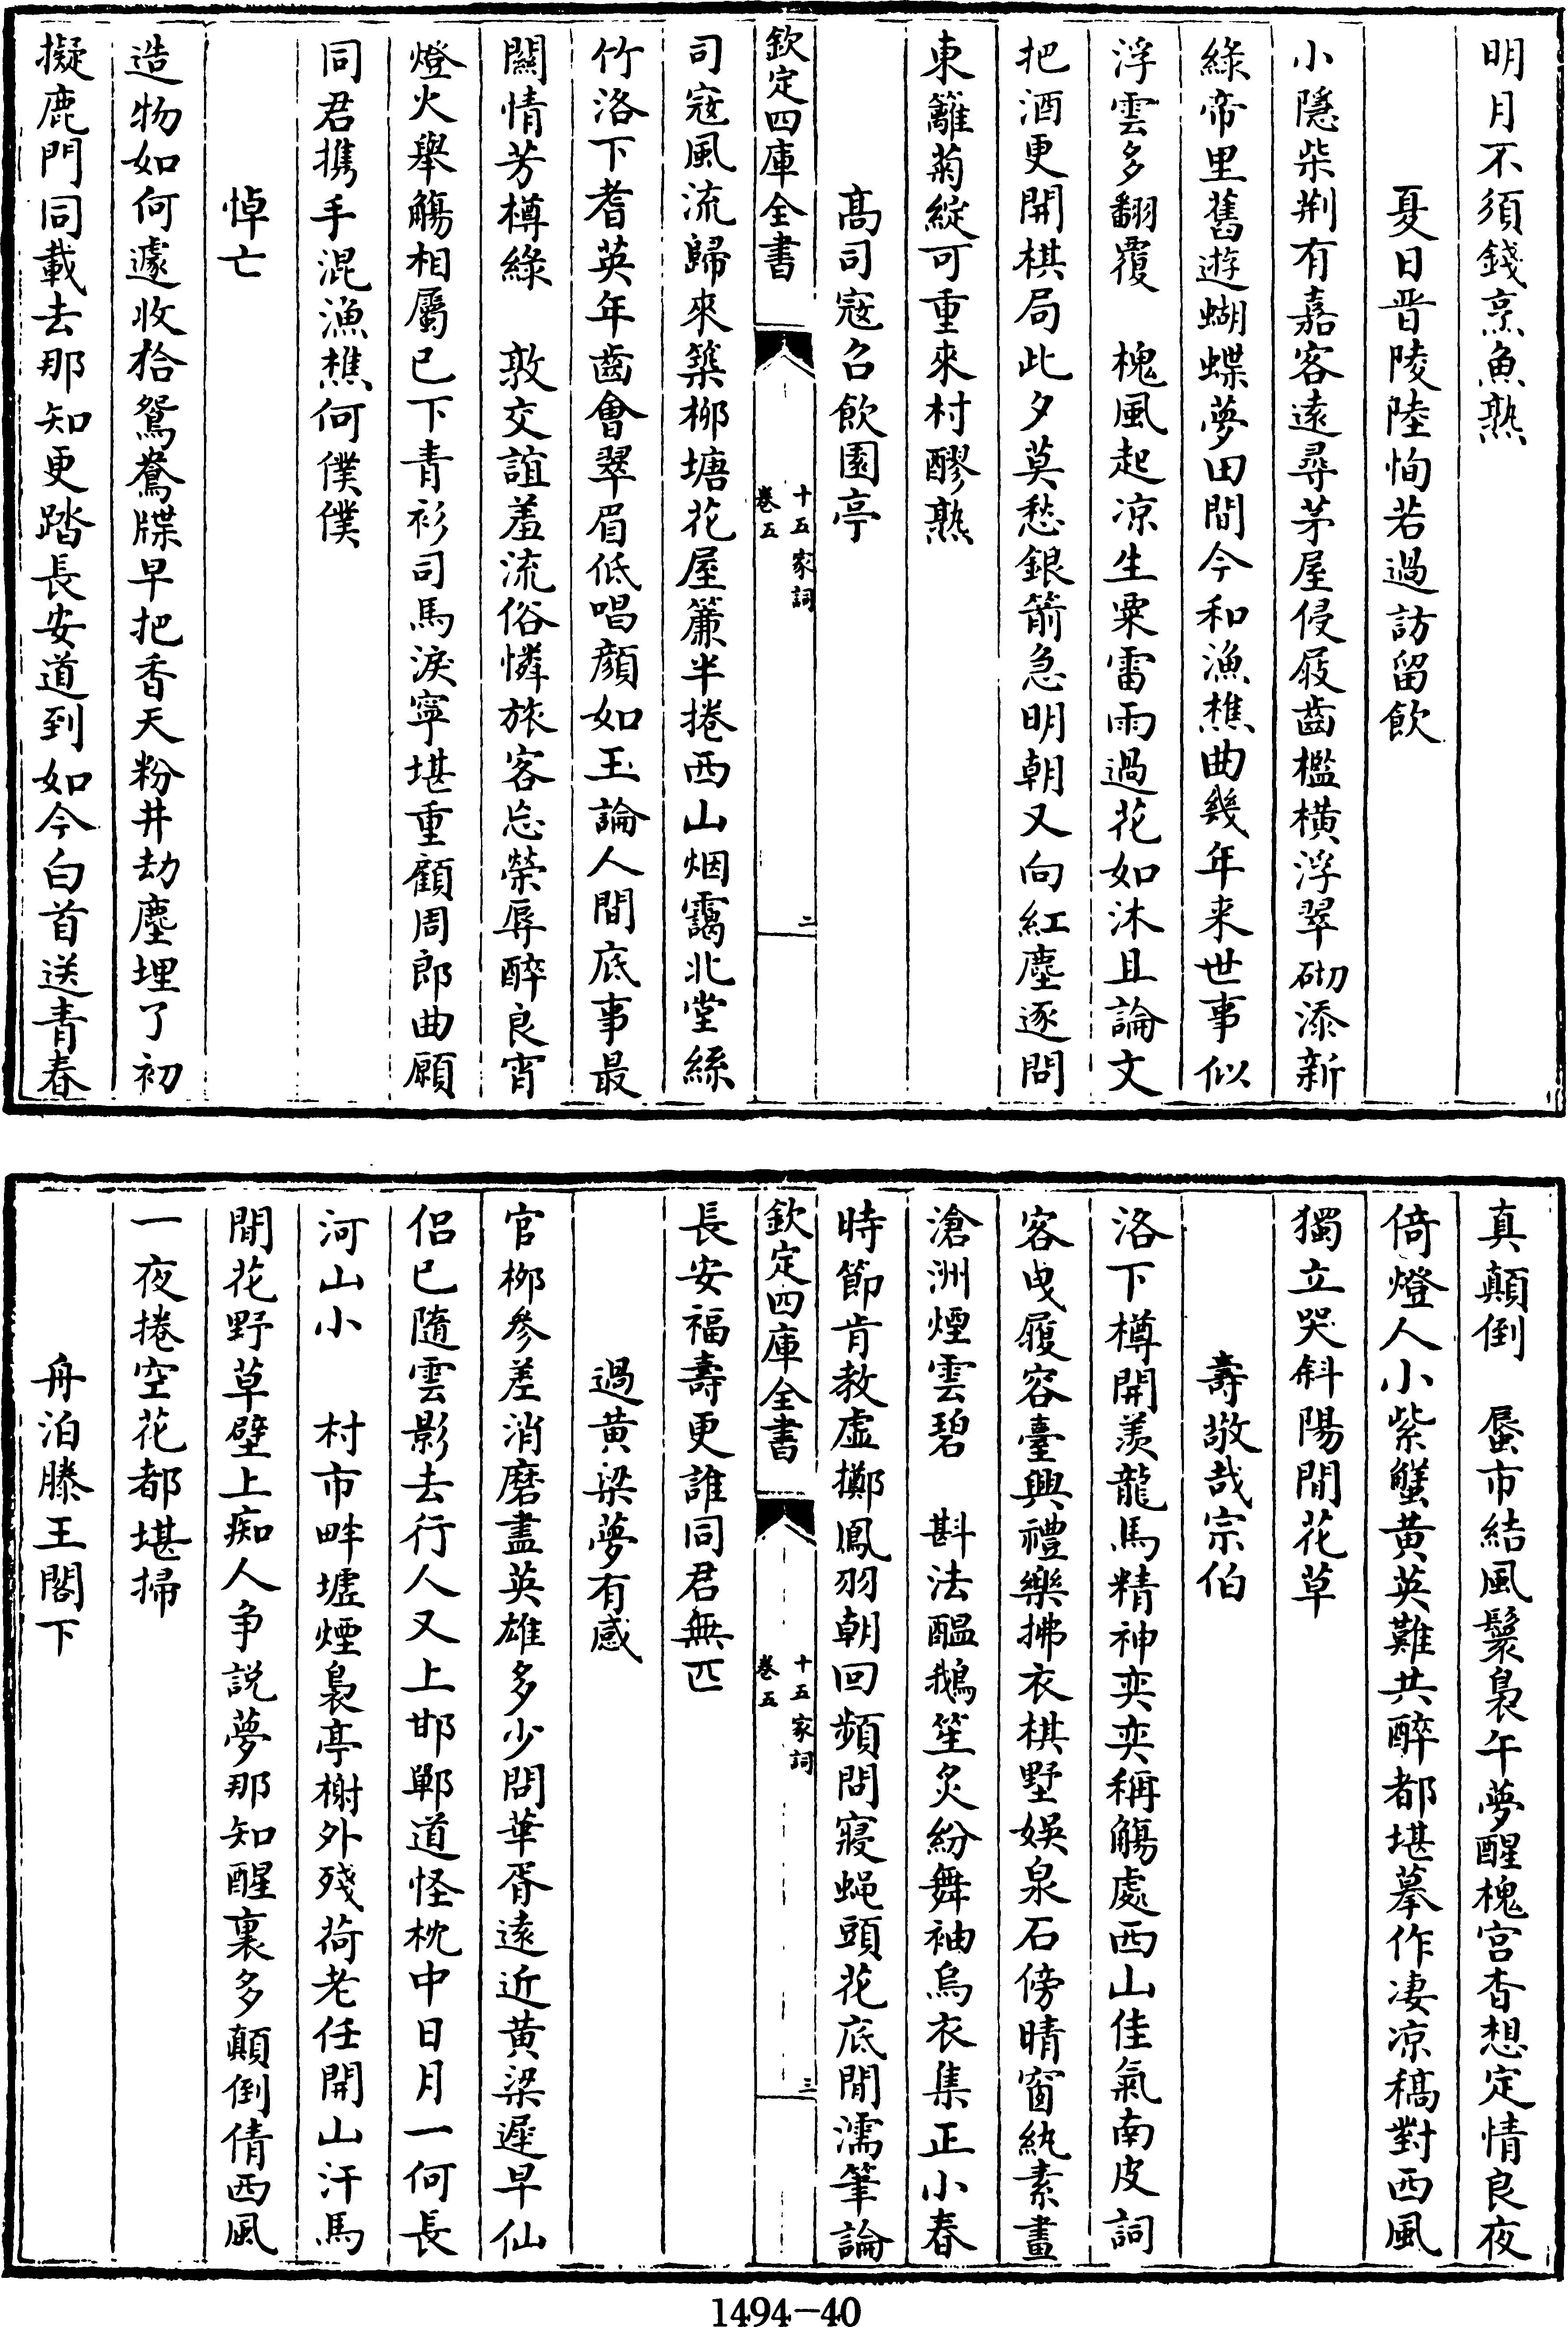 明月不須錢烹魚熟
夏日晋陵陸恂若過訪留飲
小隱柴荆有嘉客遠尋茅屋侵屐齒檻橫浮翠砌添新
綠帝里舊遊蝴蝶夢田間今和漁樵曲幾年来世事似
浮雲多翻覆　槐風起凉生粟雷雨過花如沐且論文
把酒更開棋局此夕莫愁銀箭急明朝又向紅塵逐問
東籬菊綻可重來村醪熟
髙司寇召飲園亭
欽定四庫全書
十五家詞
卷五
二
司寇風流歸來築栁塘花屋簾半捲西山烟靄北堂絲
竹洛下耆英年齒會翠眉低唱顔如玉論人間底事最
關情芳樽綠　敦交誼羞流俗憐旅客忘榮辱醉良宵
燈火舉觴相屬已下青衫司馬淚寧堪重顧周郎曲願
同君携手混漁樵何僕僕
悼亡
造物如何遽收拾鴛鴦牒早把香天粉井劫塵埋了初
擬鹿門同載去那知更踏長安道到如今白首送青春
真顛倒　蜃市結風鬟裊午夢醒槐宫杳想定情良夜
倚燈人小紫蟹黄英難共醉都堪摹作凄凉稿對西風
獨立哭斜陽閒花草
壽敬哉宗伯
洛下樽開羡龍馬精神奕奕稱觴處西山佳氣南皮詞
客曵履容臺興禮樂拂衣棋墅娛泉石傍晴窗紈素畫
滄洲煙雲碧　斟法醖鵝笙炙紛舞袖烏衣集正小春
時節肯教虚擲鳳羽朝回頻問寢蝇頭花底閒濡筆論
欽定四庫全書
十五家詞
卷五
三
長安福壽更誰同君無匹
過黄梁夢有感
官栁參差消磨盡英雄多少問華胥逺近黄梁遲早仙
侣已隨雲影去行人又上邯鄲道怪枕中日月一何長
河山小　村市畔墟煙裊亭榭外殘荷老任開山汗馬
閒花野草壁上痴人争説夢那知醒裏多顛倒倩西風
一夜捲空花都堪掃
舟泊滕王閣下
1494-40